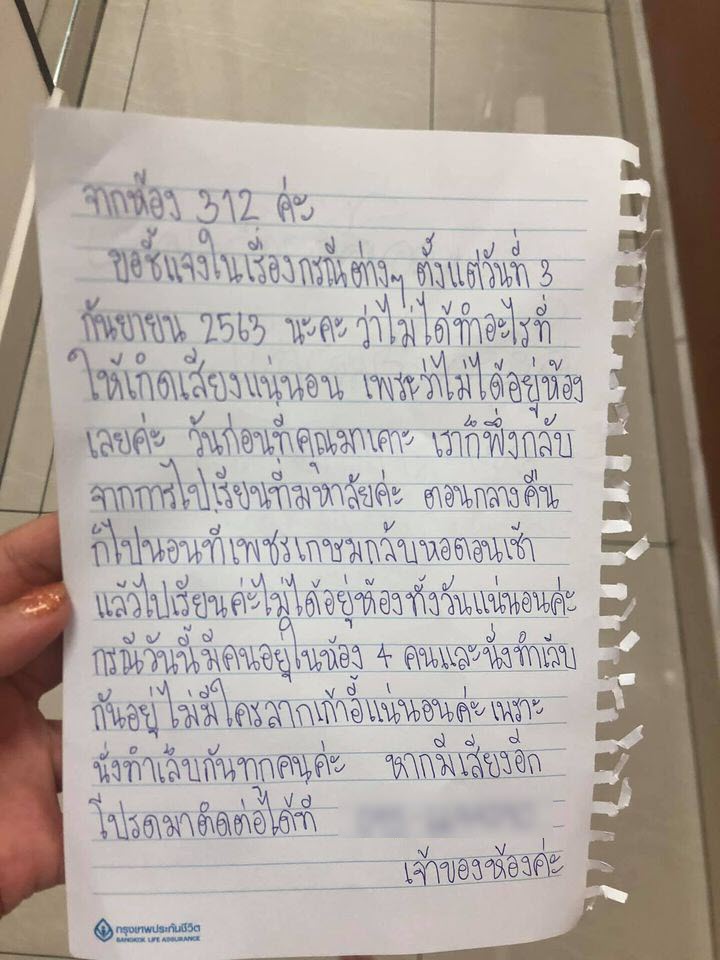 จากห้อง 312 ค่ะ
ขอชี้แจงในเรื่องกรณีต่างๆ ตั้งแต่วันที่ 3
กันยายน 2563 นะคะ ว่าไม่ได้ทำอะไรที่
ให้เกิดเสียงแน่นอน เพราะว่าไม่ได้อยู่ห้อง
เลยค่ะ วันก่อนที่คุณมาเคาะ เราก็พึ่งกลับ
จากการไปเรียนที่มหาลัยค่ะ ตอนกลางคืน
ก็ไปนอนที่เพชรเกษมกลับหอตอนเช้า
แล้วไปเรียนค่ะไม่ได้อยู่ห้องทั้งวันแน่นอนค่ะ
กรณีวันนี้มีคนอยู่ในห้อง 4 คนและนั่งทำเล็บ
กันอยู่ ไม่มีใครลากเก้าอี้แน่นอนค่ะ เพราะ
นั่งทำเล็บกันทุกคนค่ะ หากมีเสียงอีก
โปรดมาติดต่อได้ที่
เจ้าของห้องค่ะ
กรุงเทพประกันชีวิต
BANGKOK LIFE ASSURANCE